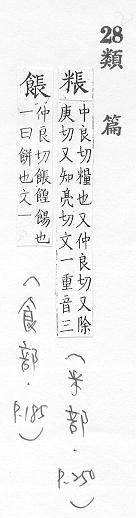 28類 篇
粻
中良切糧也又仲良切又除
庚切又知亮切文一重音三
(米部.P.250)
餦
仲良切餦餭餳也
一曰餅也文一
(食部.P.185)